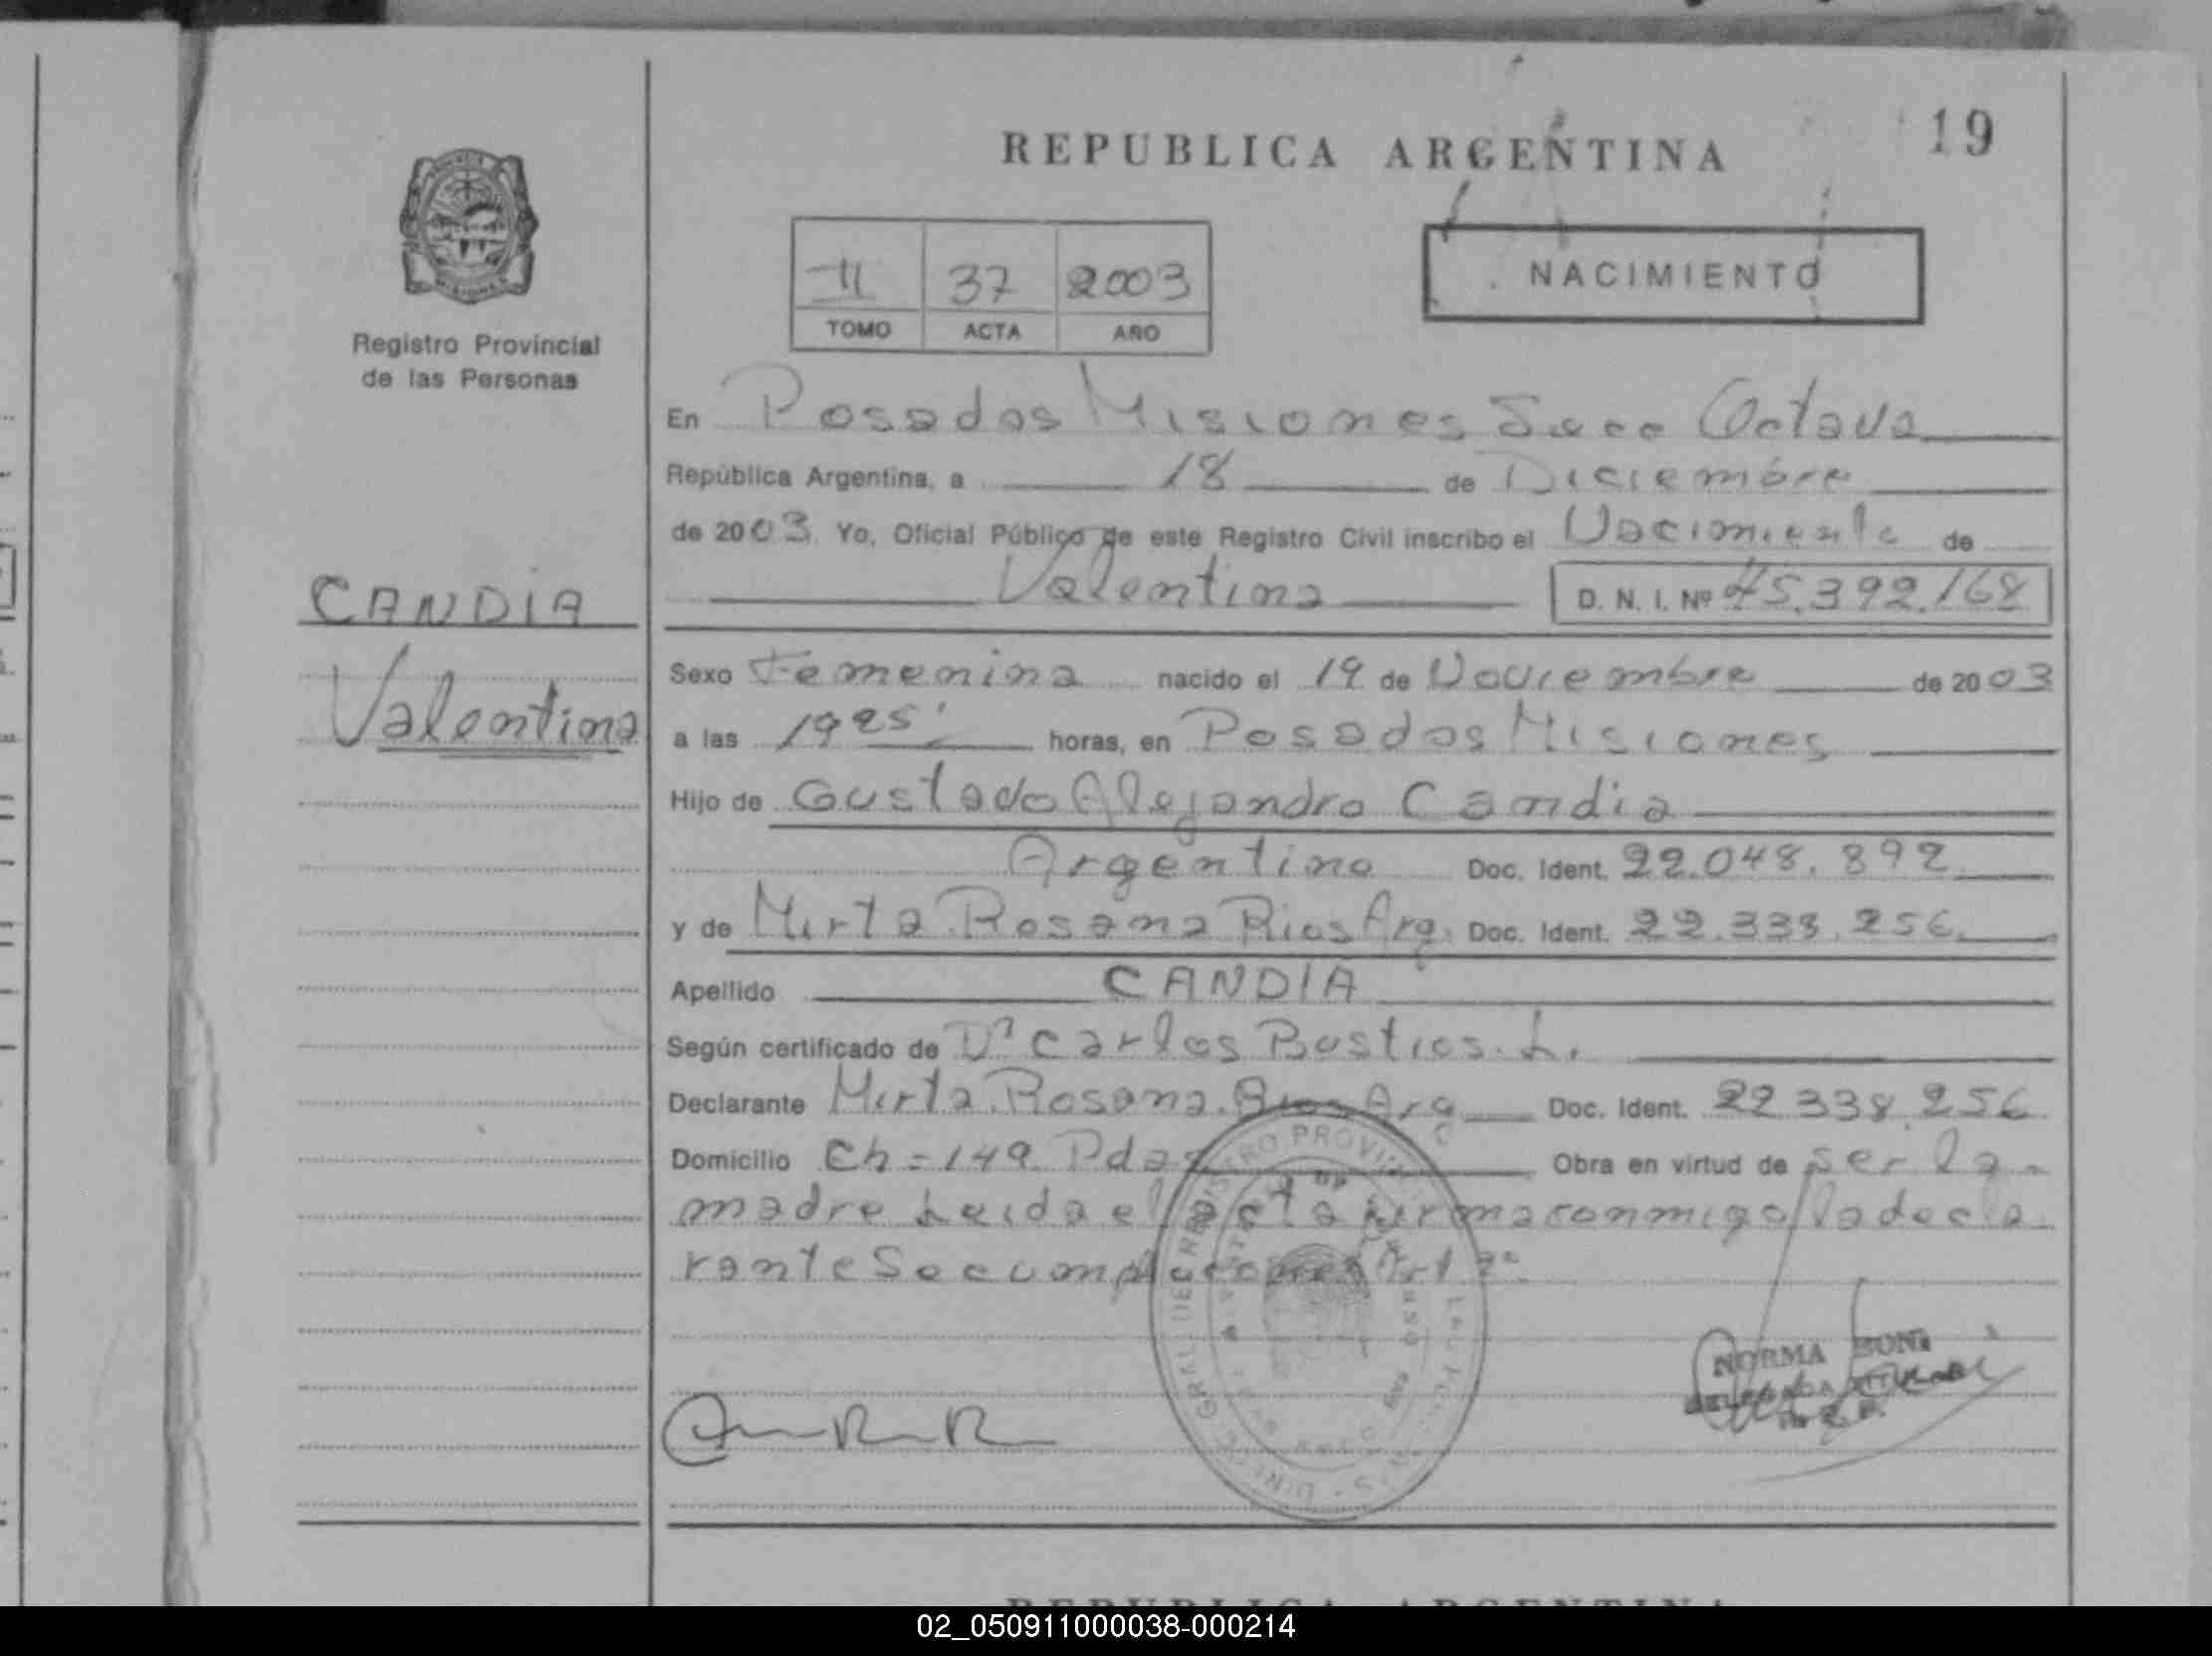 REPUBLICA ARGENTINA
19
II 37 2003
TOMO ACTA AÑO
NACIMIENTO
Registro Provincial
de las Personas
En Posadas Misiones Secc Octava
República Argentina, a 18 de Diciembre
de 2003 Yo, Oficial Público de este Registro Civil inscribo el Nacimiento de
Valentina D. N. I. Nº 45.392.168
CANDIA
Valentina
Sexo Femenina nacido el 19 de Noviembre de 2003
a las 1925' horas, en Posadas Misiones
Hijo de Gustavo Alejandro Candia
Argentino Doc. Ident. 22.048.892
y de Mirta Rosana Rios Arg. Doc. Ident. 22.338.256
Apellido CANDIA
Según certificado de Dr Carlos Bustios. L.
Declarante Mirta Rosana Rios Arg Doc. Ident. 22 338.256
Domicilio Ch = 149 Pdas Obra en virtud de ser la
madre Leida el acta firma conmigo la decla
rante Se cumple con el Art 2º
NORMA
02_050911000038-000214